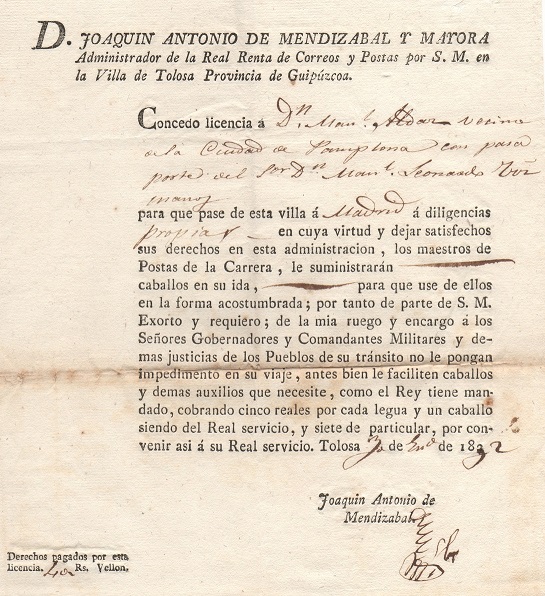 D. JOAQUIN ANTONIO DE MENDIZABAL Y MAYORA
Administrador de la Real Renta de Correos y Postas por S. M. en
la Villa de Tolosa Provincia de Guipúzcoa.
Concedo licencia á Dn. Manl. Aldaz vecino
de la Ciudad de Pamplona con pasa
porte del Sor Dn. Manl. Leonardo
para que pase de esta villa á Madrid á diligencias
propias en cuya virtud y dejar satisfechos
sus derechos en esta administracion, los maestros de
Postas de la Carrera, le suministrarán
caballos en su ida, para que use de ellos
en la forma acostumbrada; por tanto de parte de S. M.
Exorto y requiero; de la mia ruego y encargo á los
Señores Gobernadores y Comandantes Militares y de-
mas justicias de los Pueblos de su tránsito no le pongan
impedimento en su viaje, antes bien le faciliten caballos
y demas auxilios que necesite, como el Rey tiene man-
dado, cobrando cinco reales por cada legua y un caballo
siendo del Real servicio, y siete de particular, por con-
venir asi á su Real servicio. Tolosa de de 1832
Joaquin Antonio de
Mendizabal.
Derechos pagados por esta
licencia. 40 Rs. Vellon.